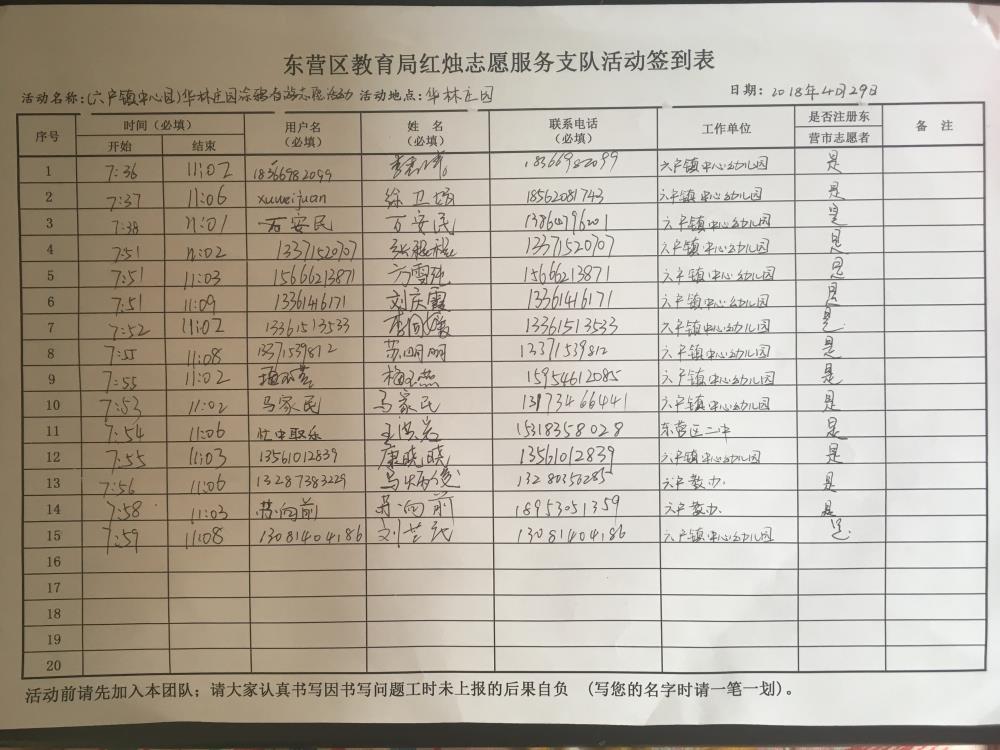 东营区教育局红烛志愿服务支队活动签到表
活动名称:(六户镇中心园)华林庄园 志愿活动 活动地点:华林庄园 日期:2018年4月29日
序号 时间(必填) 用户名(必填) 姓 名(必填) 联系电话(必填) 工作单位 是否注册东营市志愿者 备 注
开始 结束
1 7:36 11:02 18366982099 18366982099 六户镇中心幼儿园 是
2 7:37 11:06 xuweijuan 徐卫娟 18562081743 六户镇中心幼儿园 是
3 7:38 11:01 万安民 万安民 13864796201 六户镇中心幼儿园 是
4 7:51 11:02 13371520707 13371520707 六户镇中心幼儿园 是
5 7:51 11:03 15666213871 15666213871 六户镇中心幼儿园 是
6 7:51 11:09 13361416171 刘庆霞 13361416171 六户镇中心幼儿园 是
7 7:52 11:02 13361513533 13361513533 六户镇中心幼儿园 是
8 7:55 11:08 13371539812 苏明明 13371539812 六户镇中心幼儿园 是
9 7:55 11:02 15954612085 六户镇中心幼儿园 是
10 7:53 11:02 马家民 马家民 13173466441 六户镇中心幼儿园 是
11 7:54 11:06 忙中取乐 王洪岩 15318358028 东营区二中 是
12 7:55 11:03 13561012839 康晓晓 13561012839 六户镇中心幼儿园 是
13 7:56 11:06 13287383229 13280356285 六户教办 是
14 7:58 11:03 苏向前 苏向前 18953051359 六户教办 是
15 7:59 11:08 13081404186 13081404186 六户镇中心幼儿园 是
16
17
18
19
20
活动前请先加入本团队;请大家认真书写因书写问题工时未上报的后果自负 (写您的名字时请一笔一划)。